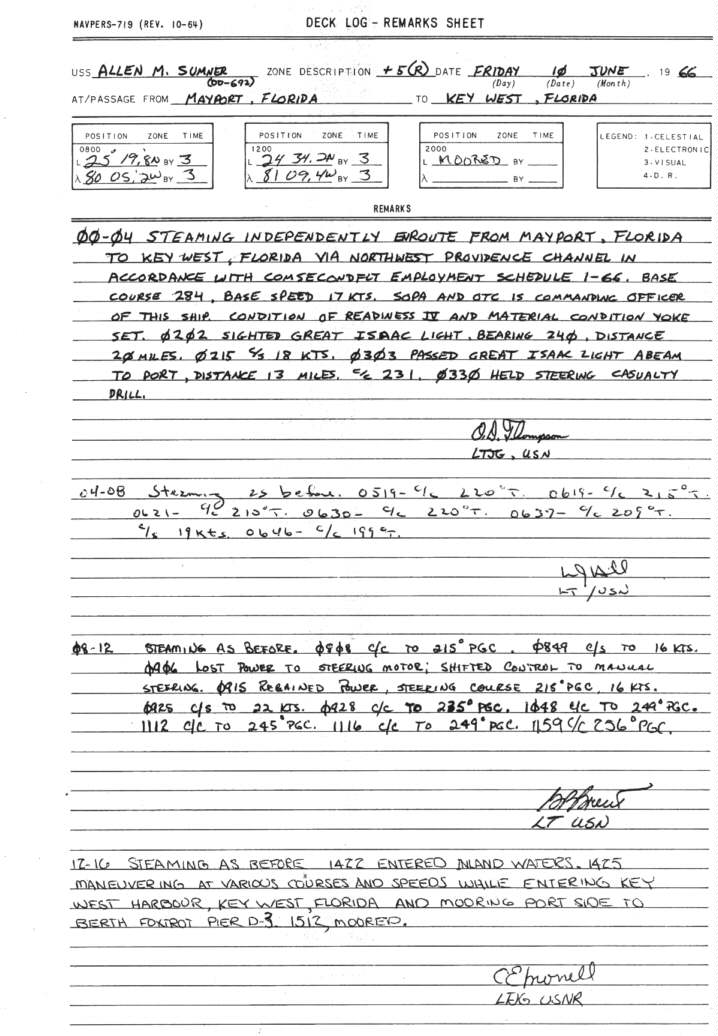 NAVPERS-719 (REV. 10-64) DECK LOG - REMARKS SHEET
USS ALLEN M. SUMNER ZONE DESCRIPTION +5(R) DATE FRIDAY 1Ø JUNE , 19 66
(DD-692) (Day) (Date) (Month)
AT/PASSAGE FROM MAYPORT, FLORIDA TO KEY WEST, FLORIDA
POSITION ZONE TIME POSITION ZONE TIME POSITION ZONE TIME LEGEND: 1-CELESTIAL
0800 1200 2000 2-ELECTRONIC
L 25° 19.8N BY 3 L 24 34.2N BY 3 L MOORED BY 3-VISUAL
λ 80 05.2W BY 3 λ 81 09.4W BY 3 λ BY 4-D. R.
REMARKS
ØØ-Ø4 STEAMING INDEPENDENTLY ENROUTE FROM MAYPORT, FLORIDA
TO KEY WEST, FLORIDA VIA NORTHWEST PROVIDENCE CHANNEL IN
ACCORDANCE WITH COMSECONDFLT EMPLOYMENT SCHEDULE 1-66. BASE
COURSE 284, BASE SPEED 17 KTS. SOPA AND OTC IS COMMANDING OFFICER
OF THIS SHIP. CONDITION OF READINESS IV AND MATERIAL CONDITION YOKE
SET. Ø2Ø2 SIGHTED GREAT ISAAC LIGHT, BEARING 24Ø, DISTANCE
2Ø MILES. Ø215 C/S 18 KTS. Ø3Ø3 PASSED GREAT ISAAC LIGHT ABEAM
TO PORT, DISTANCE 13 MILES. C/C 231. Ø33Ø HELD STEERING CASUALTY
DRILL.
O.D. Thompson
LTJG, USN
04-08 Steaming as before. 0519- C/C 220°T. 0619- C/C 215°T.
0621- C/C 210°T. 0630- C/C 220°T. 0637- C/C 209°T.
C/S 19 Kts. 0646- C/C 199°T.
LT/USN
Ø8-12 STEAMING AS BEFORE. Ø8Ø8 C/C TO 215° PGC. Ø849 C/S TO 16 KTS.
Ø9Ø6 LOST POWER TO STEERING MOTOR; SHIFTED CONTROL TO MANUAL
STEERING. Ø915 REGAINED POWER, STEERING COURSE 215° PGC, 16 KTS.
Ø925 C/S TO 22 KTS. Ø928 C/C TO 235° PGC. 1Ø48 C/C TO 249° PGC.
1112 C/C TO 245° PGC. 1116 C/C TO 249° PGC. 1159 C/C 236° PGC.
LT USN
12-16 STEAMING AS BEFORE 1422 ENTERED INLAND WATERS. 1425
MANEUVERING AT VARIOUS COURSES AND SPEEDS WHILE ENTERING KEY
WEST HARBOUR, KEY WEST, FLORIDA AND MOORING PORT SIDE TO
BERTH FOXTROT PIER D-3. 1512, MOORED.
LTJG USNR